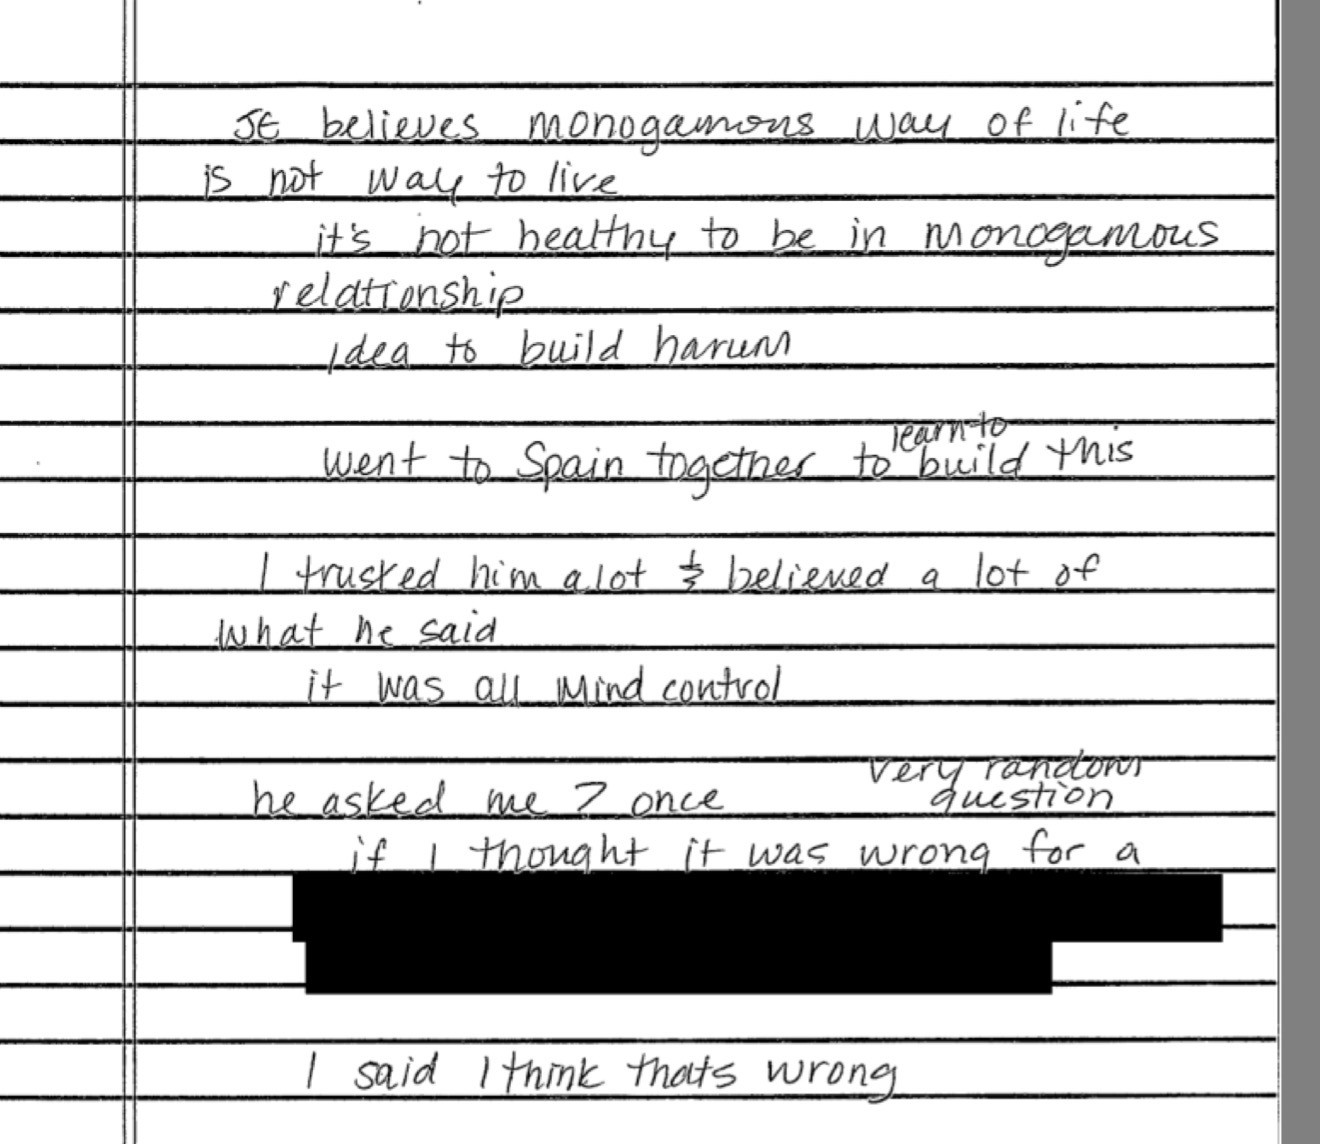 JE believes monogamous way of life
is not way to live
it's not healthy to be in monogamous
relationship
idea to build harum
went to Spain together to learn to build this
I trusted him alot & believed a lot of
what he said
it was all mind control
he asked me ? once very random question
if I thought it was wrong for a
I said I think thats wrong